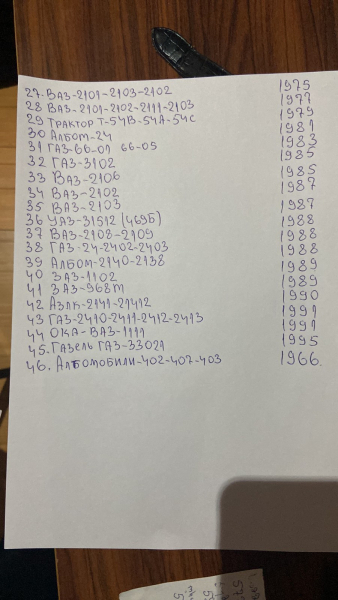 27. ВАЗ-2101-2103-2102 1975
28 ВАЗ-2101-2102-2111-2103 1977
29 ТРАКТОР Т-54В-54А-54С 1979
30 АЛБОМ-24 1981
31 ГАЗ-66-01 66-05 1983
32 ГАЗ-3102 1985
33 ВАЗ-2106 1985
34 ВАЗ-2102 1987
35 ВАЗ-2103 1987
36 УАЗ-31512 (469Б) 1988
37 ВАЗ-2108-2109 1988
38 ГАЗ-24-2402-2403 1988
39 АЛБОМ-2140-2138 1989
40 ЗАЗ-1102 1989
41 ЗАЗ-968М 1990
42 АЗЛК-2141-21412 1991
43 ГАЗ-2410-2411-2412-2413 1991
44 ОКА-ВАЗ-1111 1995
45. ГАЗЕЛЬ ГАЗ-33021 1966.
46. АЛБОМОБИЛИ-402-407-403